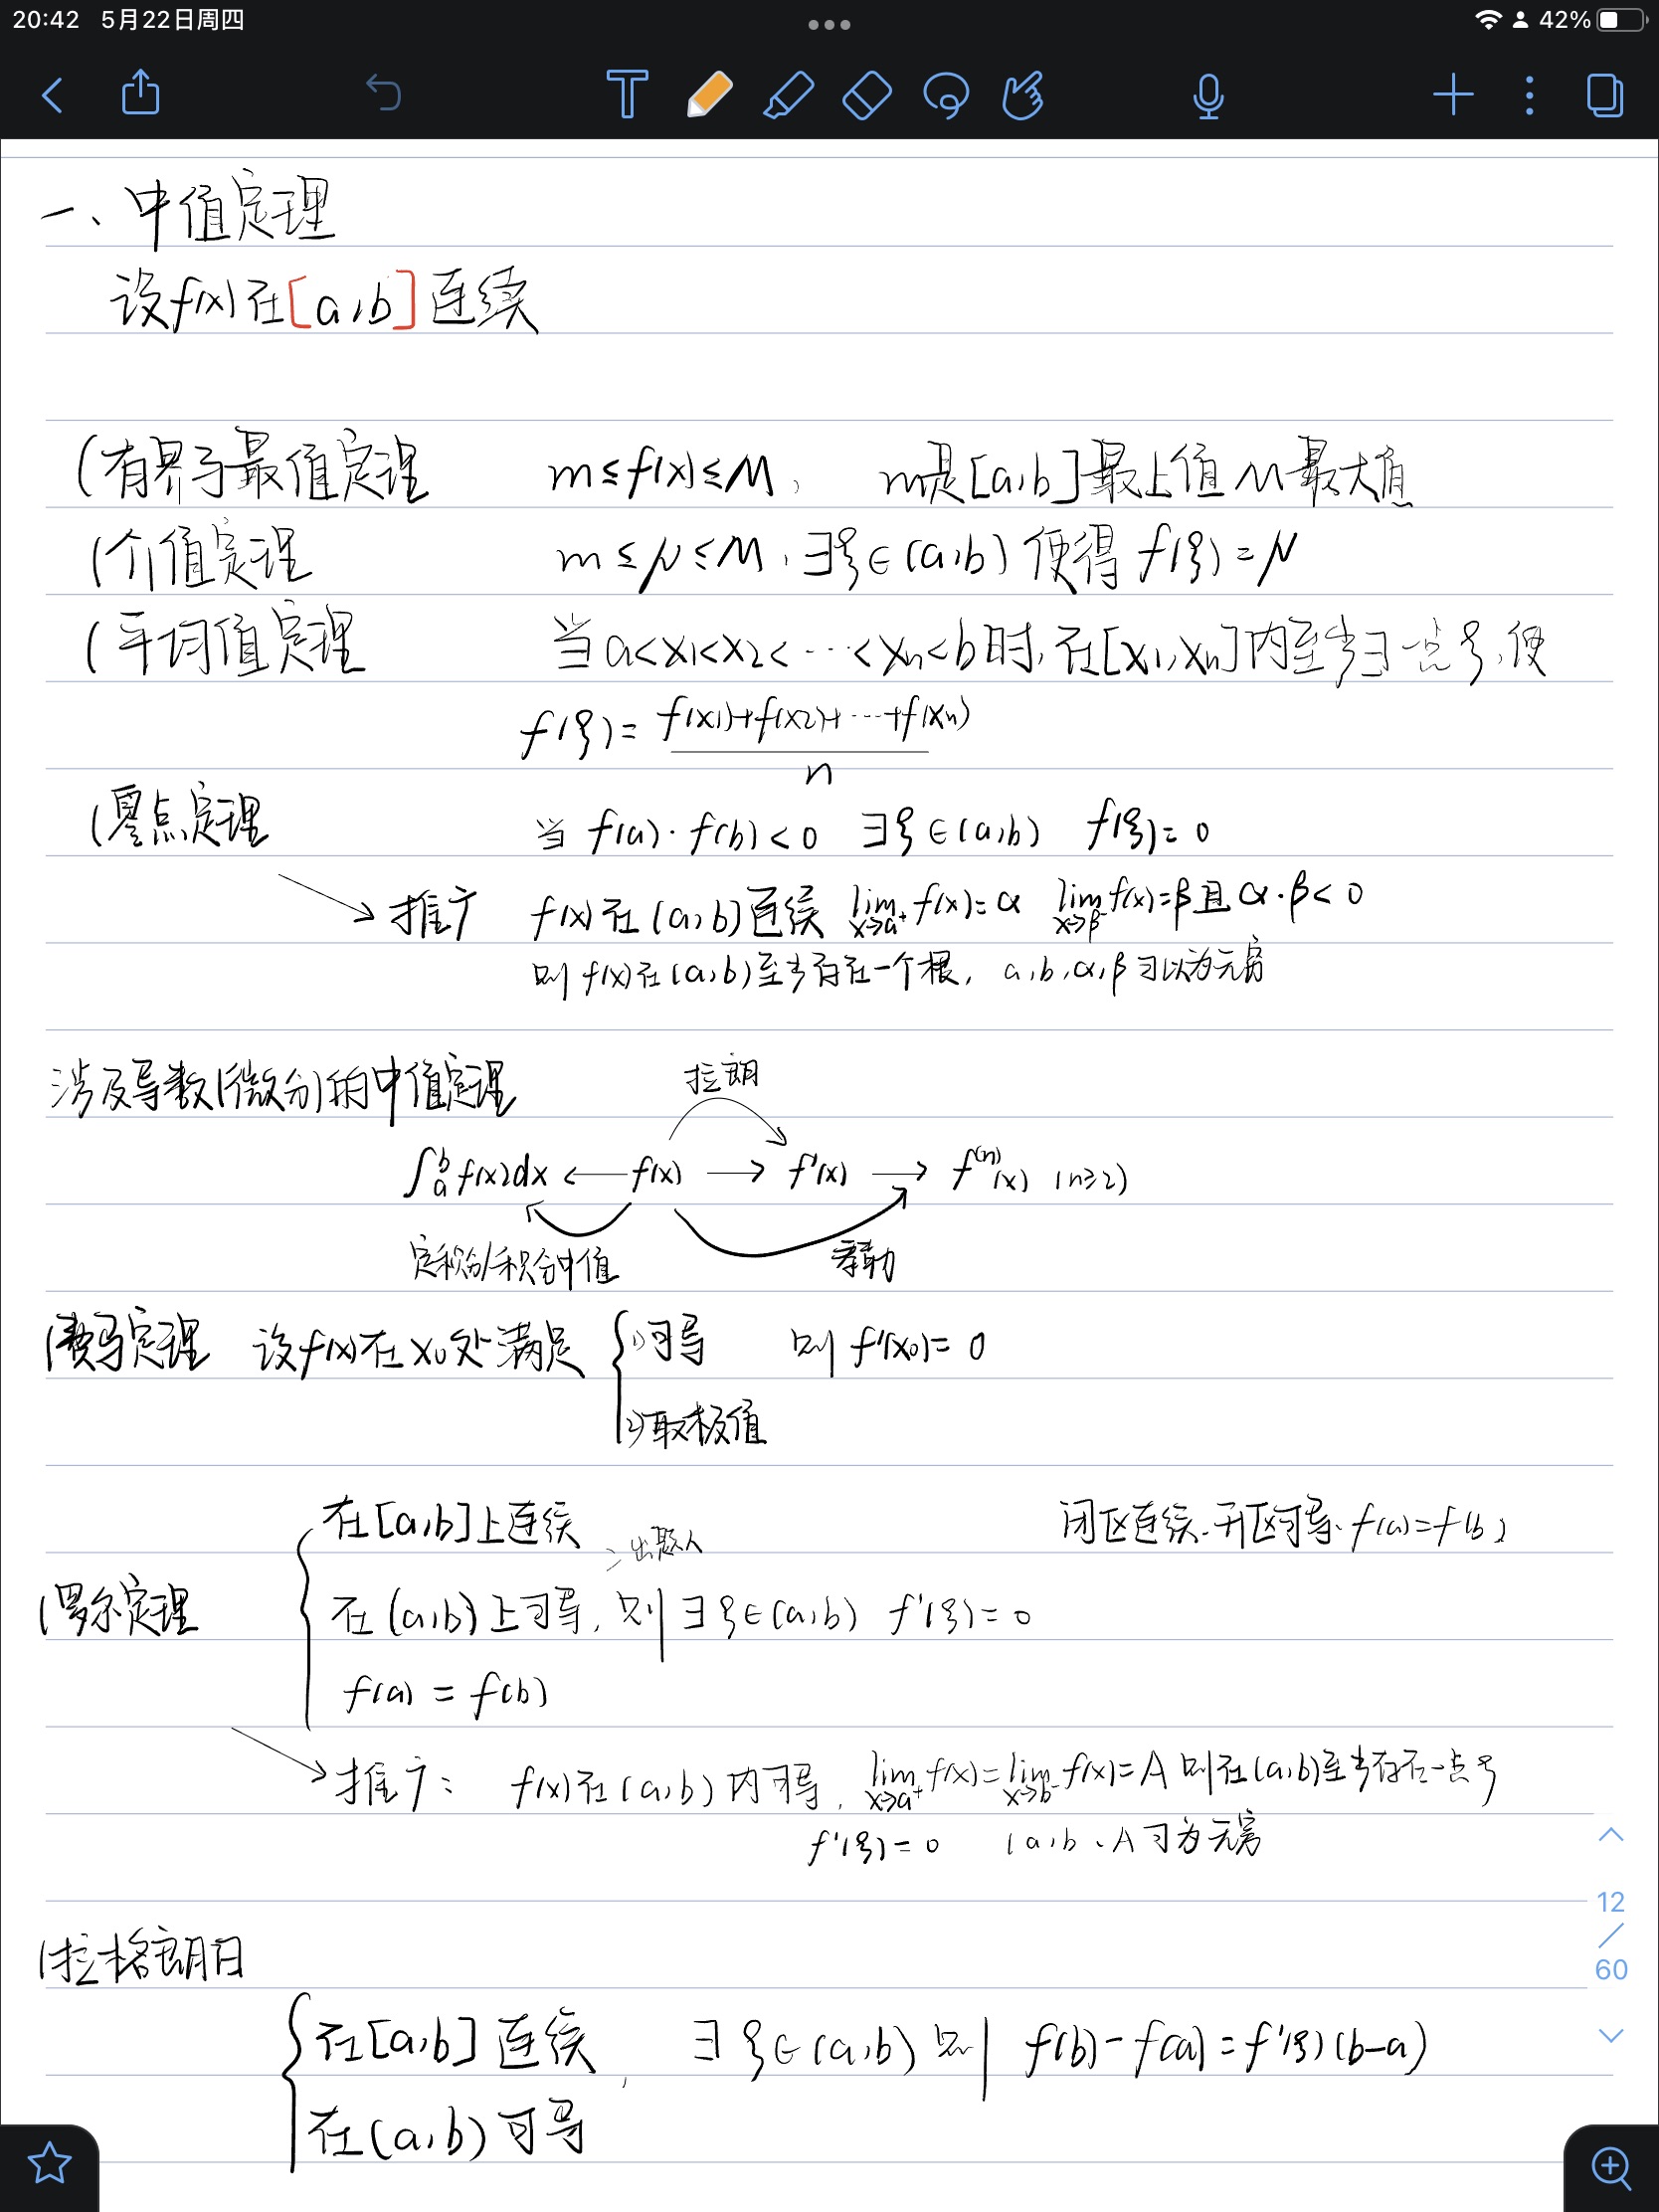 20:42 5月22日周四 42%
一、中值定理
设f(x)在[a,b]连续
(有界与最值定理 m≤f(x)≤M, m是[a,b]最小值 M最大值
(介值定理 m≤μ≤M,∃ξ∈(a,b)使得 f(ξ)=μ
(平均值定理 当a<x₁<x₂<…<xₙ<b时,在[x₁,xₙ]内至少∃一点ξ,使
f(ξ)=f(x₁)+f(x₂)+…+f(xₙ)
n
(零点定理 当 f(a)·f(b)<0 ∃ξ∈(a,b) f(ξ)=0
→推广 f(x)在(a,b)连续 lim f(x)=α lim f(x)=β且α·β<0
x→a⁺ x→β⁻
则 f(x)在(a,b)至少存在一个根, a,b,α,β可以为无穷
涉及导数(微分)的中值定理
拉朗
∫ₐᵇf(x)dx ← f(x) → f'(x) → f⁽ⁿ⁾(x) (n≥2)
定积分/积分中值 泰勒
(费马定理 设f(x)在x₀处满足 { 1)可导 则 f'(x₀)=0
2)取极值
在[a,b]上连续 闭区连续、开区可导、f(a)=f(b)
出题人
(罗尔定理 在(a,b)上可导, 则∃ξ∈(a,b) f'(ξ)=0
f(a)=f(b)
→推广: f(x)在(a,b)内可导, lim f(x)=lim f(x)=A 则在(a,b)至少存在一点ξ
x→a⁺ x→b⁻
f'(ξ)=0 (a,b、A可为无穷
12
/
60
(拉格朗日
{ 在[a,b]连续, ∃ξ∈(a,b) 则 f(b)-f(a)=f'(ξ)(b-a)
在(a,b)可导